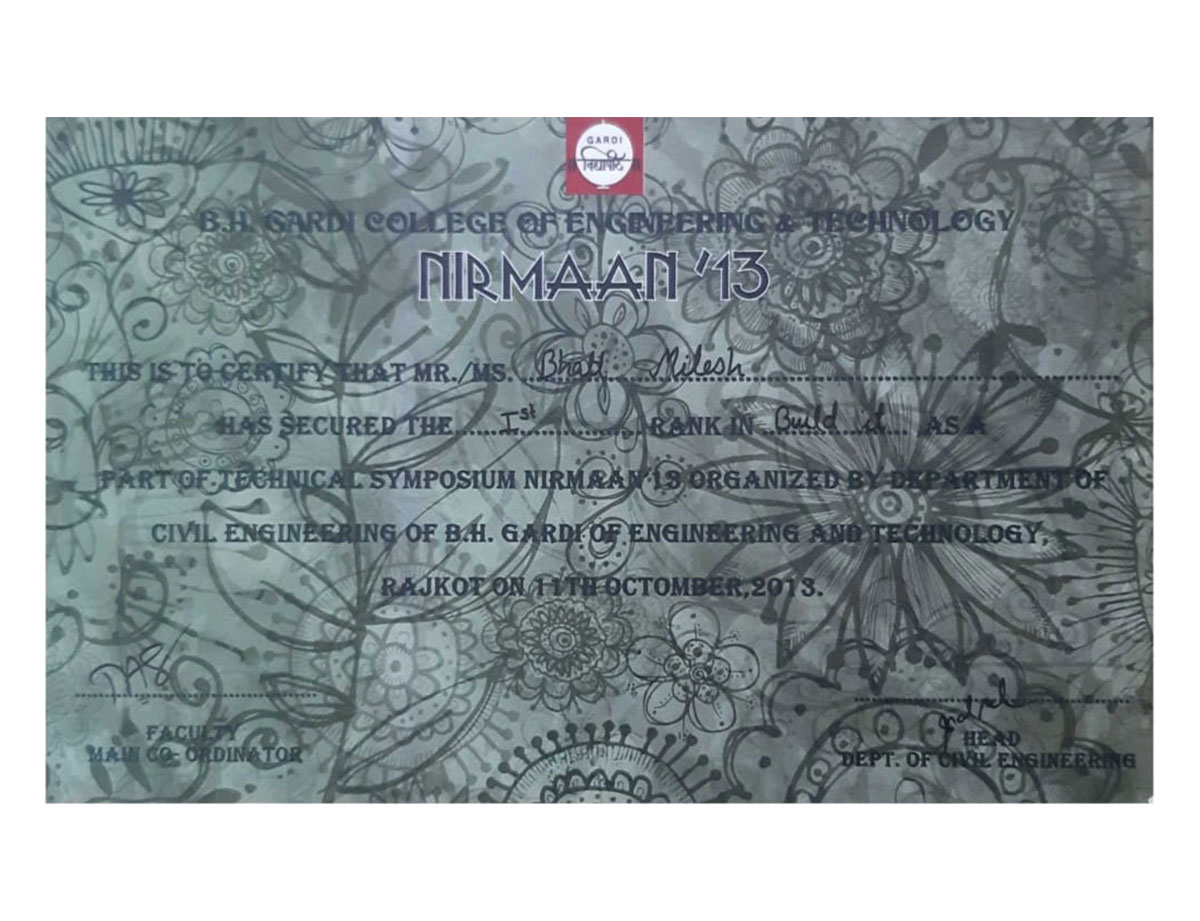 GARDI
विद्यापीठ
B.H. GARDI COLLEGE OF ENGINEERING & TECHNOLOGY
NIRMAAN '13
THIS IS TO CERTIFY THAT MR./MS. Bhatt Milesh
HAS SECURED THE Ist RANK IN Build it AS A
PART OF TECHNICAL SYMPOSIUM NIRMAAN'13 ORGANIZED BY DEPARTMENT OF
CIVIL ENGINEERING OF B.H. GARDI OF ENGINEERING AND TECHNOLOGY,
RAJKOT ON 11TH OCTOMBER,2013.
FACULTY
MAIN CO- ORDINATOR
HEAD
DEPT. OF CIVIL ENGINEERING